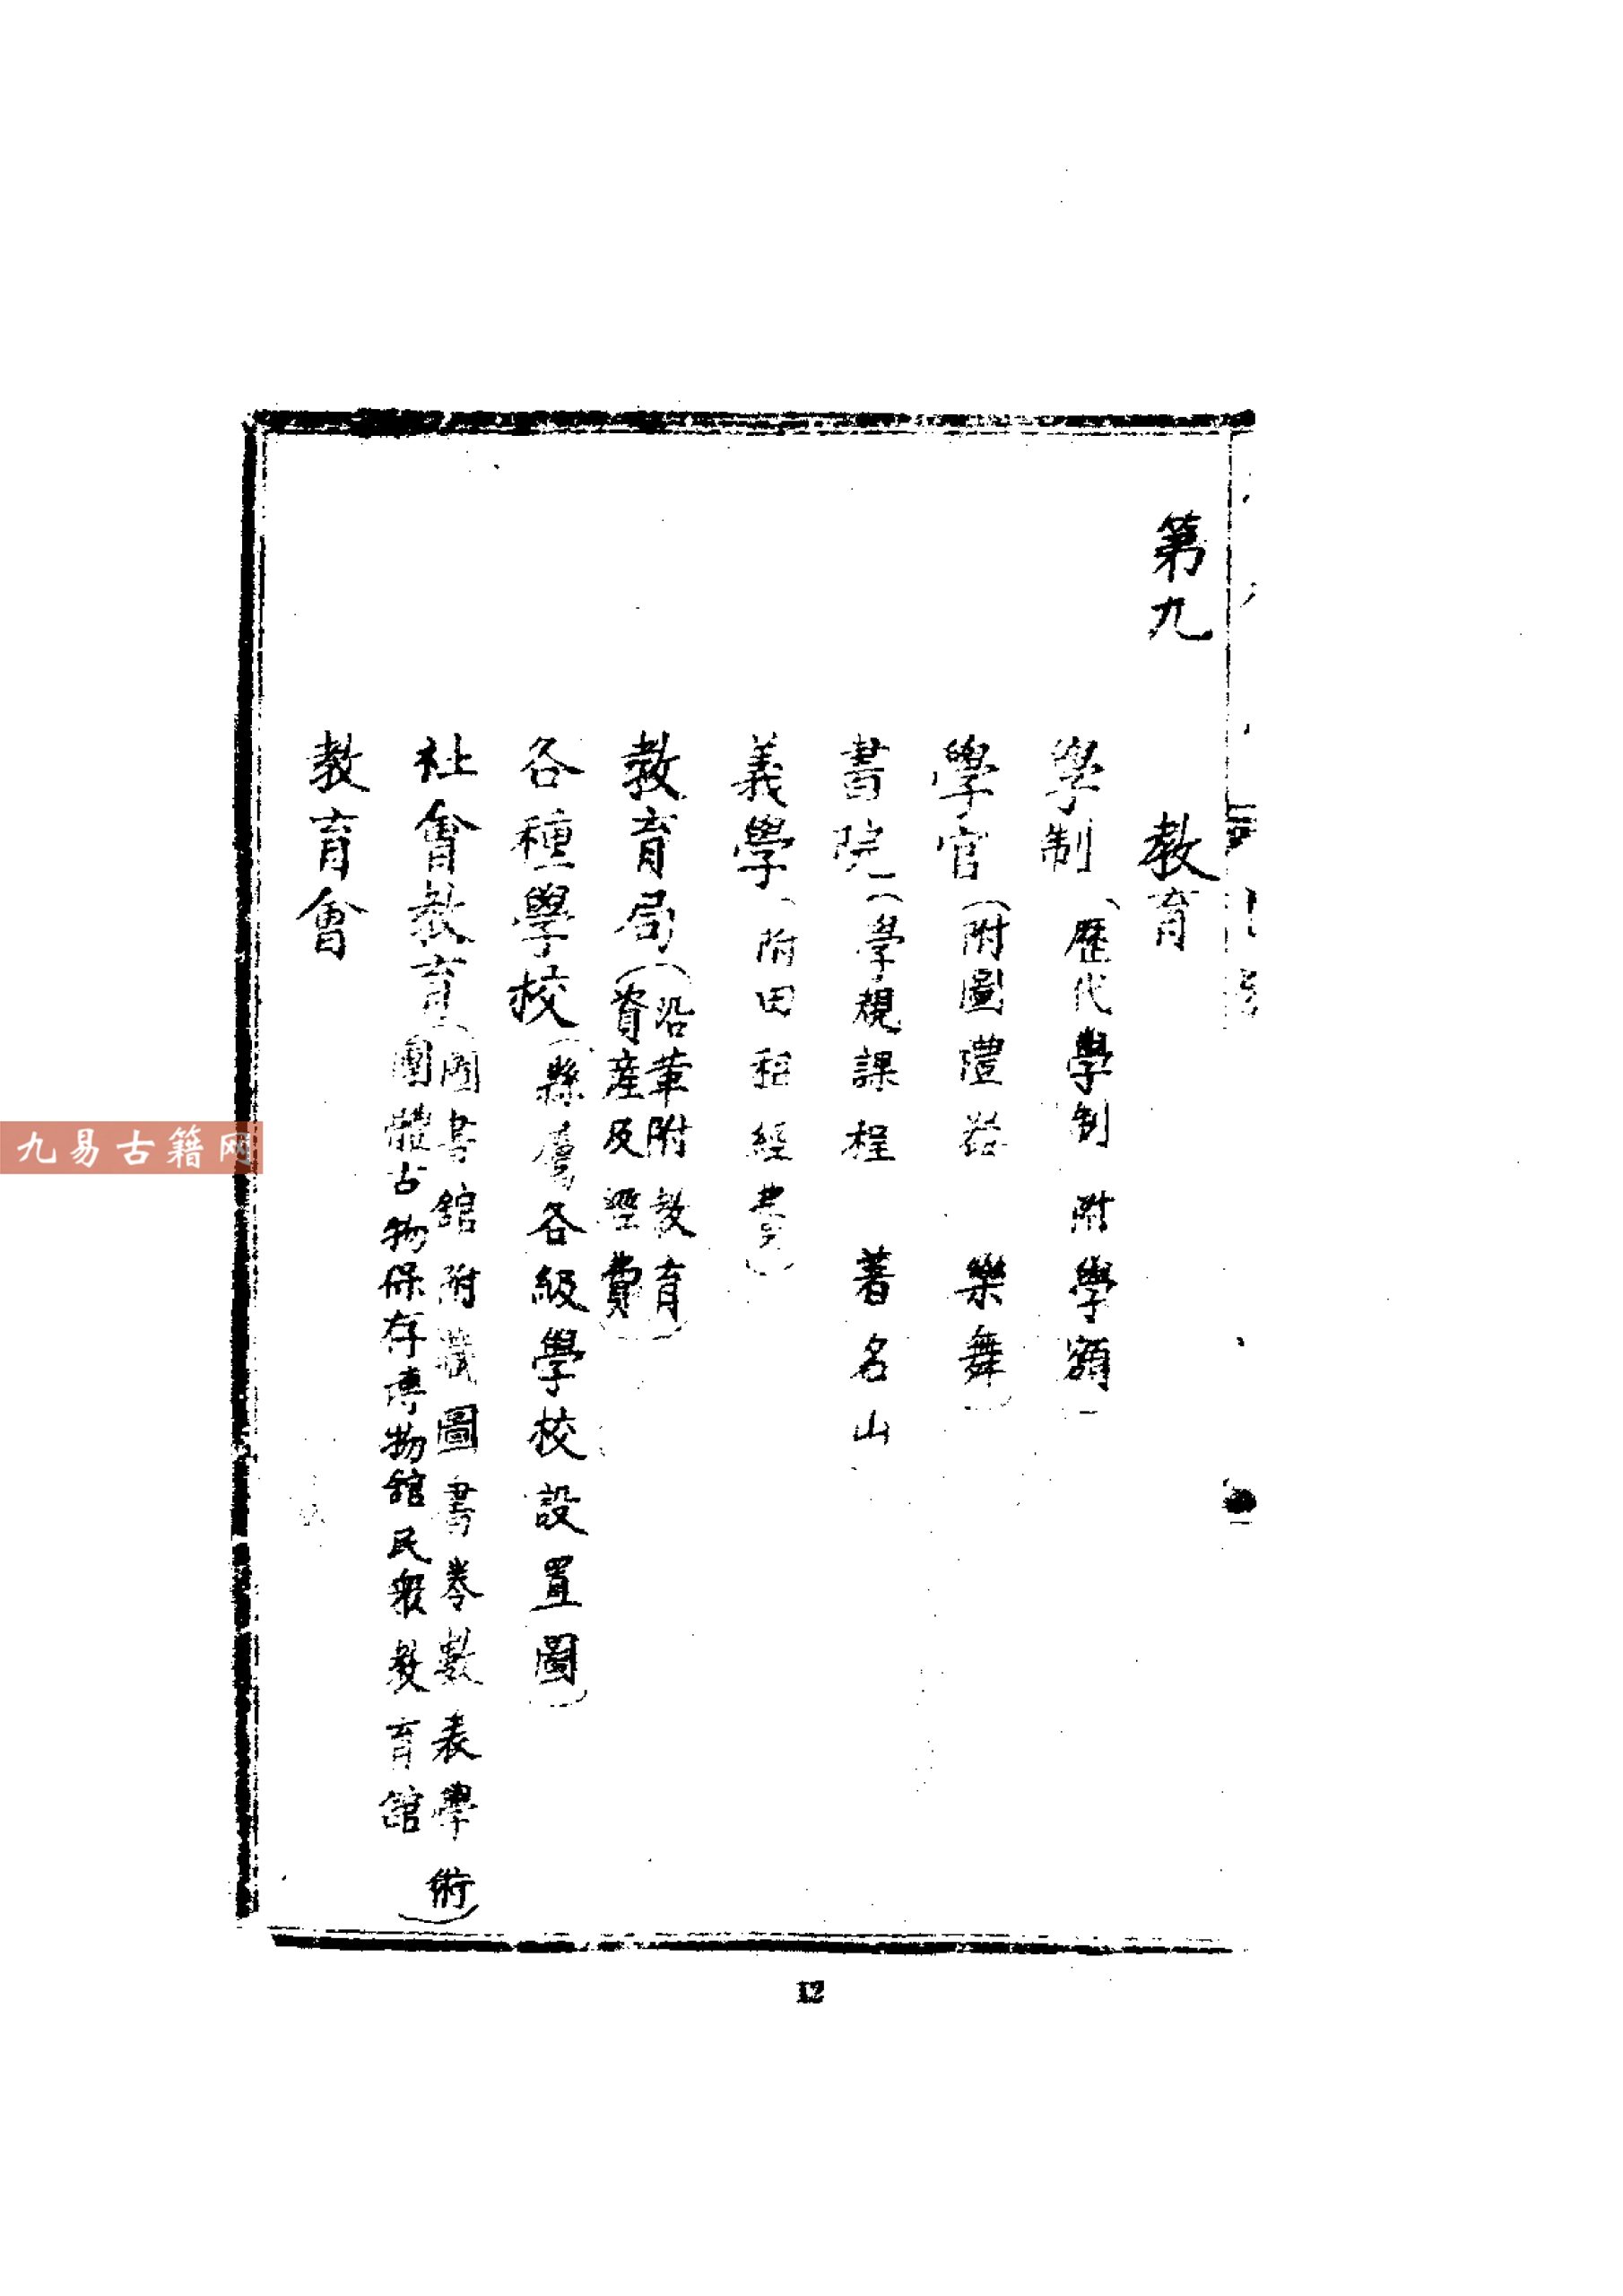 第九　教育
學制（歷代學制　附學額）
學官（附圖禮器　樂舞）
書院（學規課程　著名山
義學（附田租經費）
教育局（沿革附教育
資產及經費）
各種學校（縣屬各級學校設置圖）
社會教育（圖書館附藏圖書卷數表學術
團體古物保存博物館民衆教育館）
教育會
12
九易古籍网